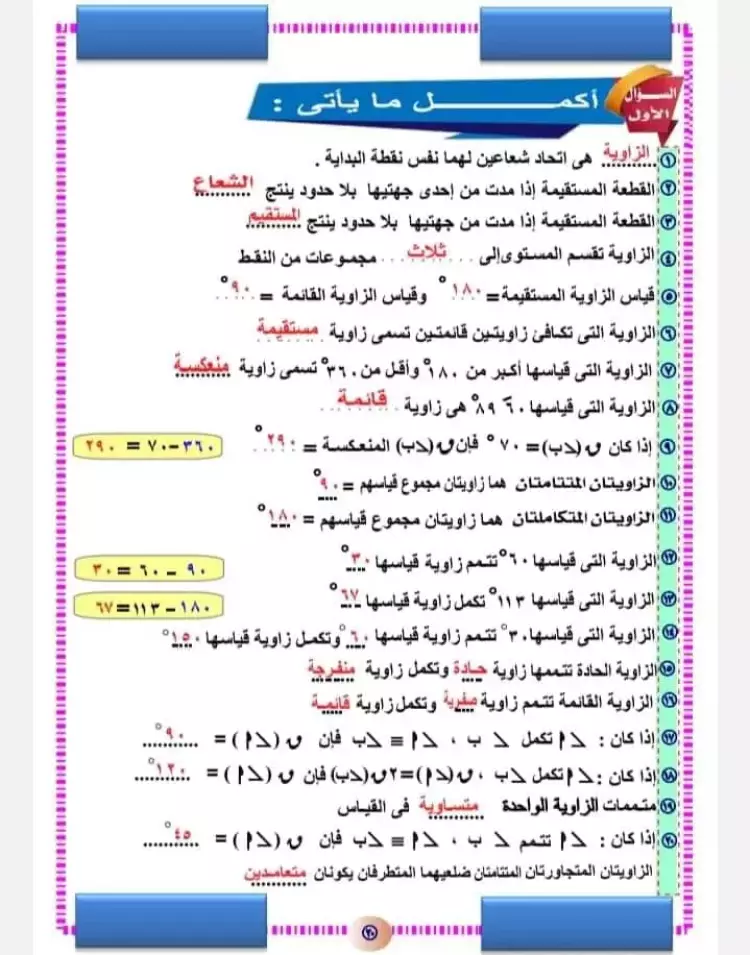 السؤال الأول
أكمــل ما يأتى :
١ الزاوية هى اتحاد شعاعين لهما نفس نقطة البداية .
٢ القطعة المستقيمة إذا مدت من إحدى جهتيها بلا حدود ينتج الشعاع
٣ القطعة المستقيمة إذا مدت من جهتيها بلا حدود ينتج المستقيم
٤ الزاوية تقسم المستوى إلى ثلاث مجموعات من النقط
٥ قياس الزاوية المستقيمة = ١٨٠° وقياس الزاوية القائمة = ٩٠°
٦ الزاوية التى تكافئ زاويتين قائمتين تسمى زاوية مستقيمة
٧ الزاوية التى قياسها أكبر من ١٨٠° وأقل من ٣٦٠° تسمى زاوية منعكسة
٨ الزاوية التى قياسها ٦٠َ ٨٩° هى زاوية قائمة
٩ إذا كان ن (ب) = ٧٠° فإن ن (ب) المنعكسة = ٢٩٠° ٣٦٠ – ٧٠ = ٢٩٠
١٠ الزاويتان المتتامتان هما زاويتان مجموع قياسهم = ٩٠°
١١ الزاويتان المتكاملتان هما زاويتان مجموع قياسهم = ١٨٠°
١٢ الزاوية التى قياسها ٦٠° تتمم زاوية قياسها ٣٠° ٩٠ – ٦٠ = ٣٠
١٣ الزاوية التى قياسها ١١٣° تكمل زاوية قياسها ٦٧° ١٨٠ – ١١٣ = ٦٧
١٤ الزاوية التى قياسها ٣٠° تتمم زاوية قياسها ٦٠° وتكمل زاوية قياسها ١٥٠°
١٥ الزاوية الحادة تتممها زاوية حادة وتكمل زاوية منفرجة
١٦ الزاوية القائمة تتمم زاوية صفرية وتكمل زاوية قائمة
١٧ إذا كان : ∠ أ تكمل ∠ ب ، ∠ أ ≡ ∠ ب فإن ن (∠ أ) = ٩٠°
١٨ إذا كان : ∠ أ تكمل ∠ ب ، ن (∠ أ) = ٢ ن (∠ ب) فإن ن (∠ أ) = ١٢٠°
١٩ متممات الزاوية الواحدة متساوية فى القياس
٢٠ إذا كان : ∠ أ تتمم ∠ ب ، ∠ أ ≡ ∠ ب فإن ن (∠ أ) = ٤٥°
الزاويتان المتجاورتان المتتامتان ضلعيهما المتطرفان يكونان متعامدين
٢٠